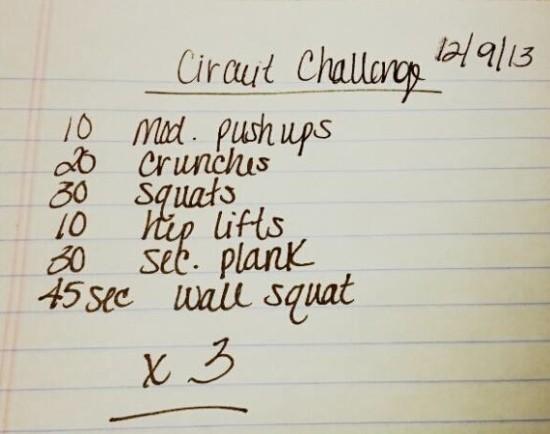 Circuit Challenge 12/9/13
10 mod. pushups
20 crunches
30 squats
10 hip lifts
30 sec. plank
45 sec wall squat
x 3